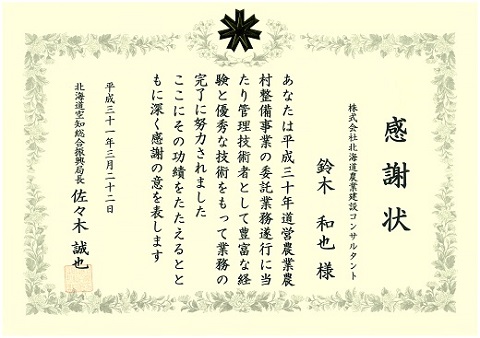 感謝状
株式会社北海道農業建設コンサルタント
鈴木 和也 様
あなたは平成三十年道営農業農
村整備事業の委託業務遂行に当
たり管理技術者として豊富な経
験と優秀な技術をもって業務の
完了に努力されました
ここにその功績をたたえるとと
もに深く感謝の意を表します
平成三十一年三月二十二日
北海道空知総合振興局長 佐々木 誠也